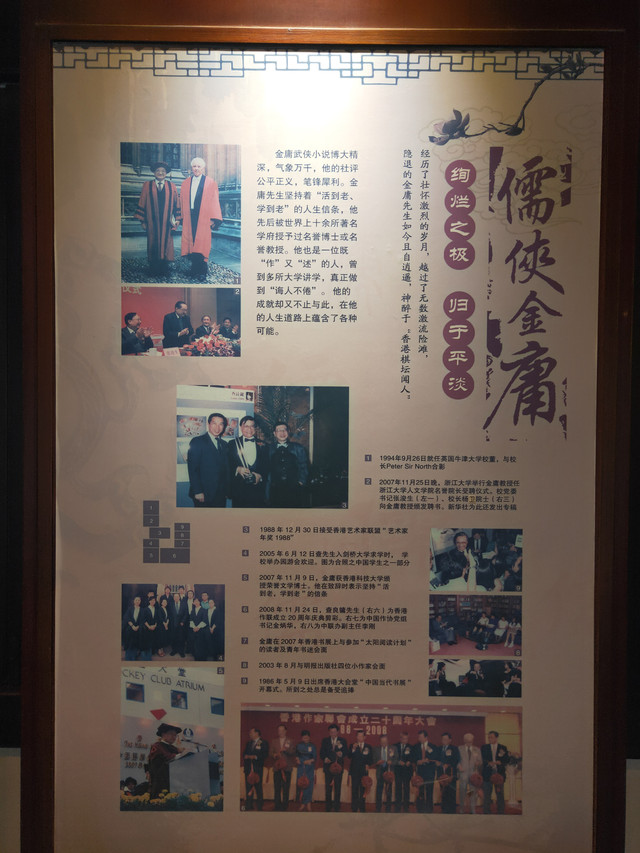 儒俠金庸
绚烂之极 归于平淡
经历了壮怀激烈的岁月，越过了无数激流险滩，
隐退的金庸先生如今且自逍遥，神醉于“香港棋坛闻人”
金庸武侠小说博大精
深，气象万千，他的社评
公平正义，笔锋犀利。金
庸先生坚持着“活到老、
学到老”的人生信条，他
先后被世界上十余所著名
学府授予过名誉博士或名
誉教授。他也是一位既
“作”又“述”的人，曾
到多所大学讲学，真正做
到“诲人不倦”。他的
成就却又不止与此，在他
的人生道路上蕴含了各种
可能。
1 1994年9月26日就任英国牛津大学校董，与校
长Peter Sir North合影
2 2007年11月25日晚，浙江大学举行金庸教授任
浙江大学人文学院名誉院长受聘仪式。校党委
书记张浚生（左一）、校长杨卫院士（右三）
向金庸教授颁发聘书，新华社为此还发出专稿
3 1988年12月30日接受香港艺术家联盟“艺术家
年奖1988”
4 2005年6月12日查先生入剑桥大学求学时，学
校举办园游会欢迎。图为合照之中国学生之一部分
5 2007年11月9日，金庸获香港科技大学颁
授荣誉文学博士，他在致辞时表示坚持“活
到老，学到老”的信条
6 2008年11月24日，查良镛先生（右六）为香港
作联成立20周年庆典剪彩，右七为中国作协党组
书记金炳华，右八为中联办副主任李刚
7 金庸在2007年香港书展上与参加“太阳阅读计划”
的读者及青年书迷会面
8 2003年8月与明报出版社四位小作家会面
9 1986年5月9日出席香港大会堂“中国当代书展”
开幕式。所到之处总是备受追捧
1
2
3
4
5
6
8
9
CKEY CLUB ATRIUM
香港作家聯會成立二十周年大會
88—2008